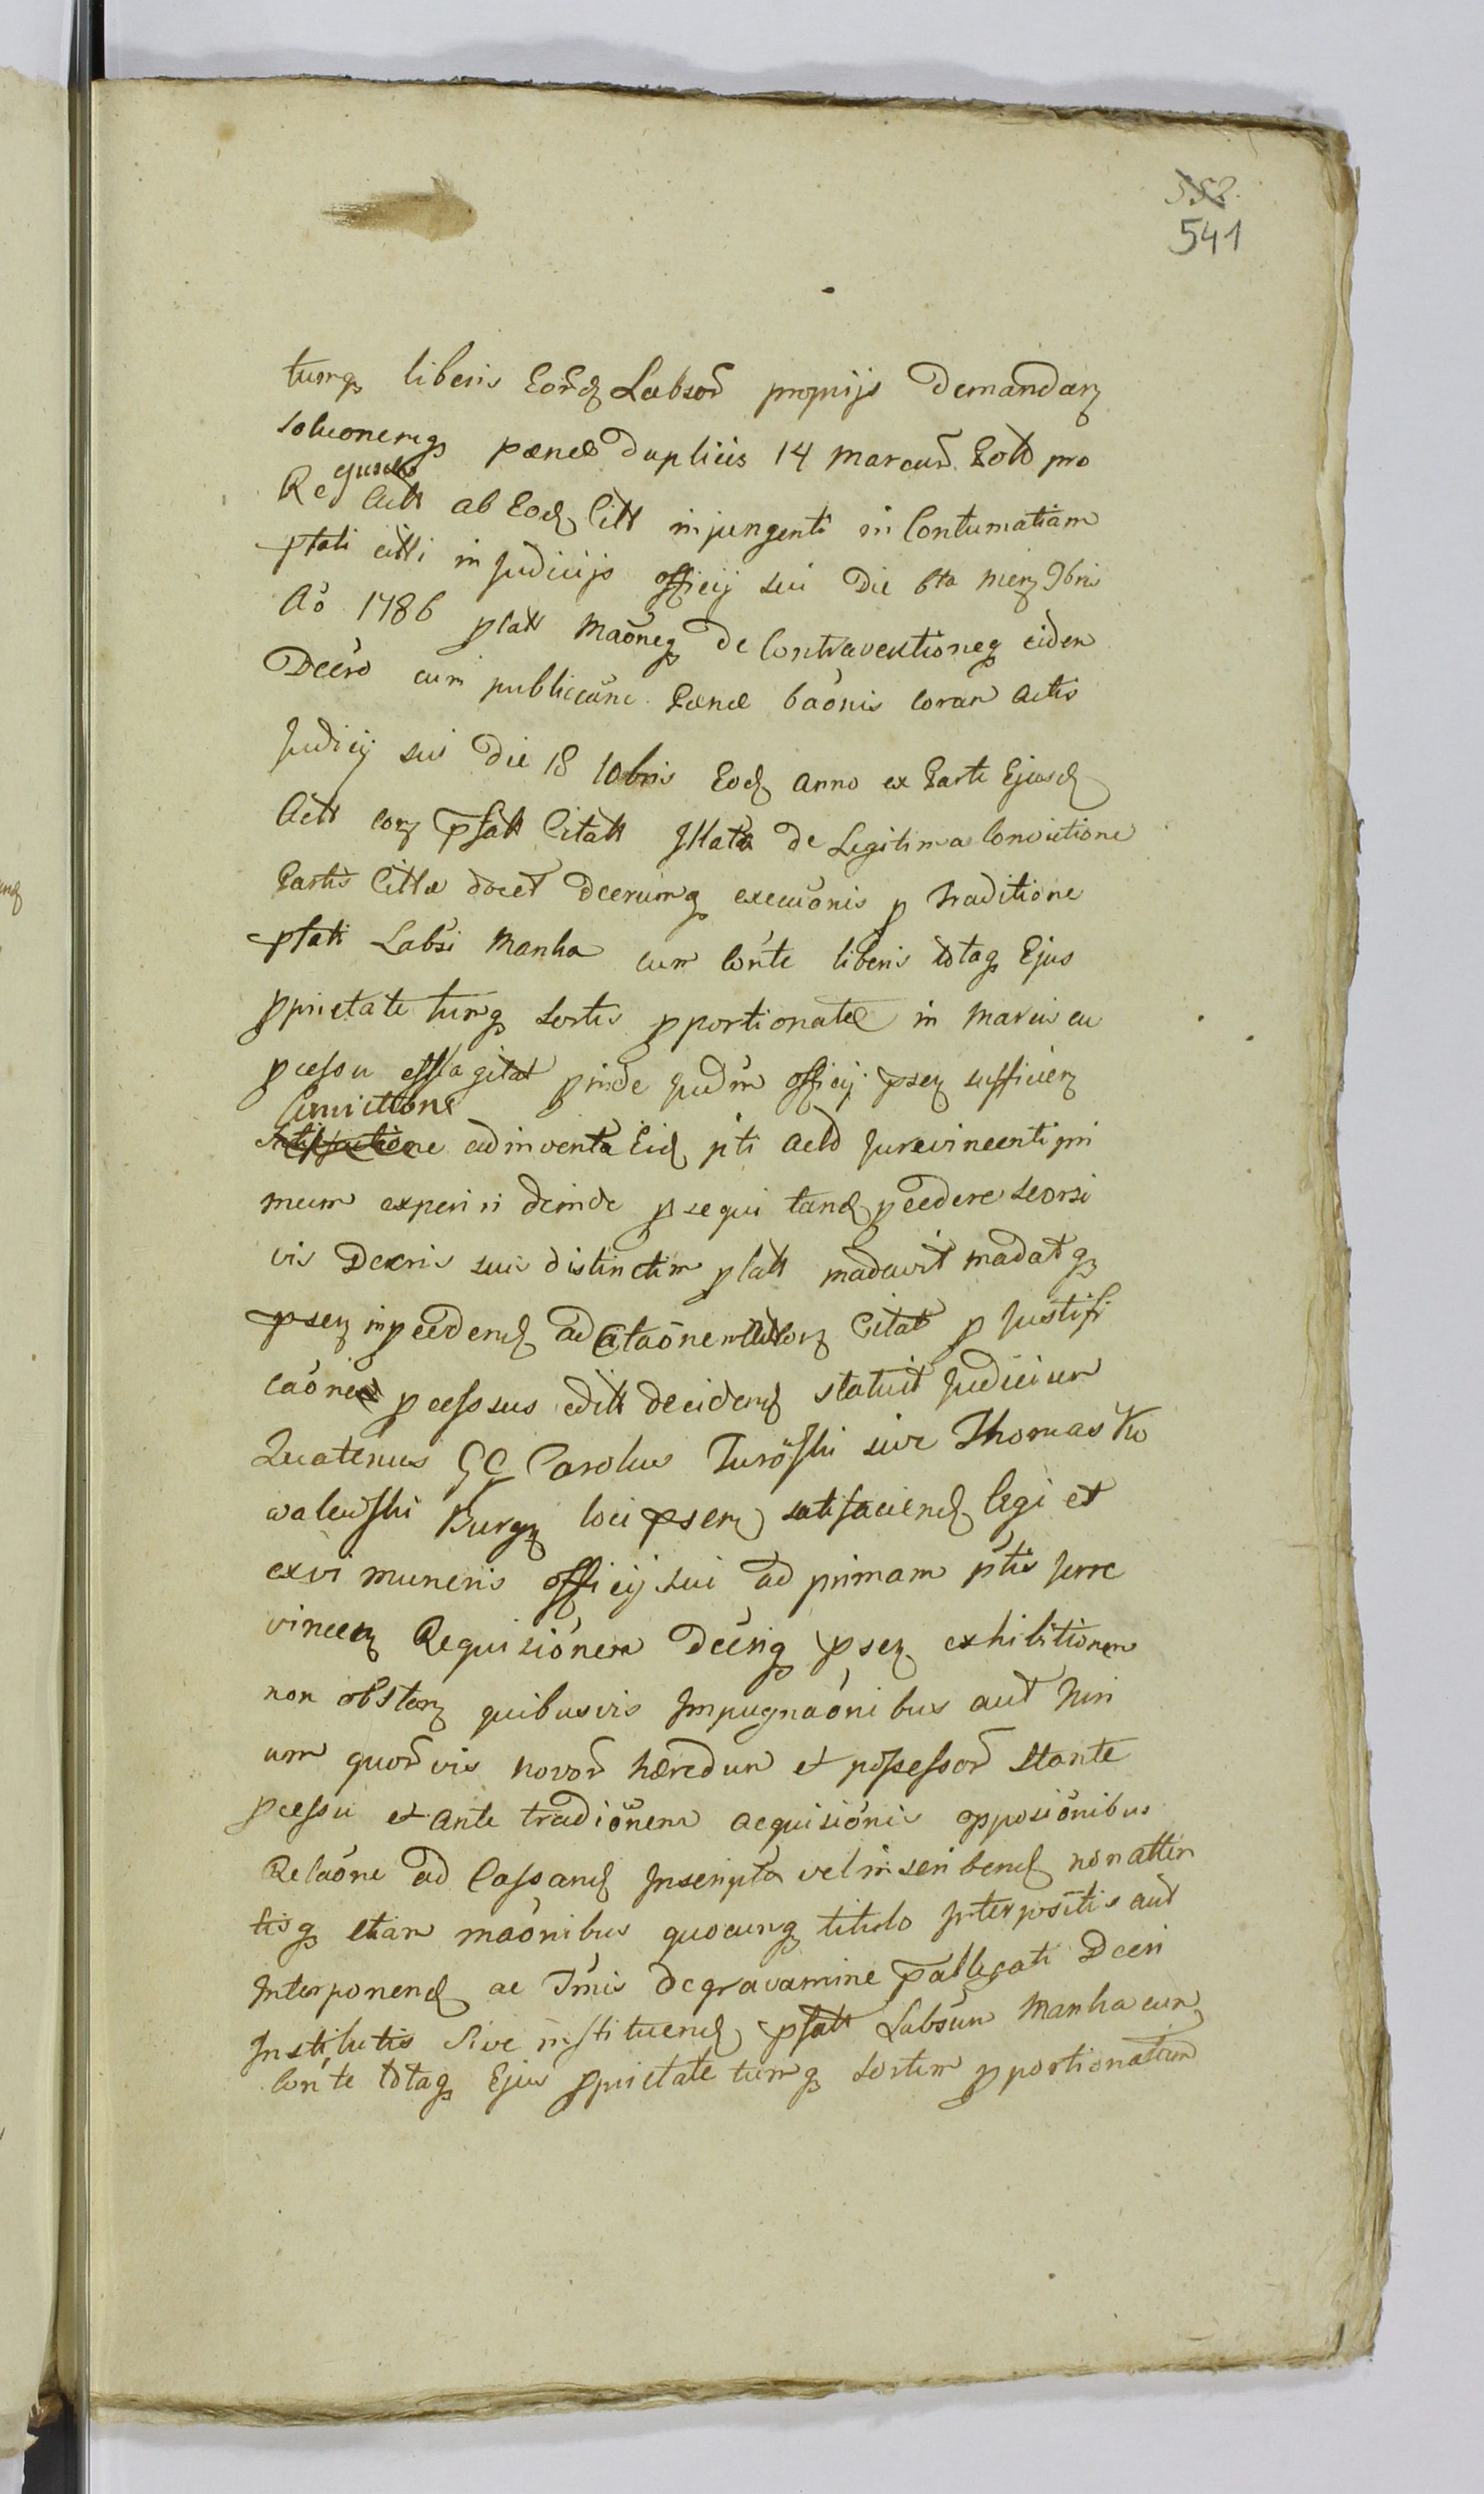 552.
541
tumq liberis Eord Labsor proprijs Demandarz
soluonemq pænæ Duplicis 14 marcar Polo pro
Re ejusdem Actt ab Eod Citt injungenti in Contumatiam
pſtati citti in Judicijs officij sui Die 6ta menz 9bris
Aō 1786 platt maōneq de Contraventioneq eidem
Decro cum publicaōne Pænæ baōnis coram Actis
Judicij sui Die 18 10bris Eod anno ex Parte Ejusd
Actt corz pſatt Citatt Jllata de Legitima Convictione
Partis Cittæ docet Decrumq execuōnis p traditione
pſati Labsi Manka cum Con̄te liberis totaq Ejus
pprietate tumq sortis pportionatæ in marcis cu
pcessu essagitat pinde Judm officij psez sufficiēz
Convictione
ne adinventa Eid pti Acto Jurevincenti pri
mum experiri deinde psequi tand pcedere seorsi
vis Decris suis distinctim platt madavit madatq
psez in pcedend ad Citaōnem Citat p Justifi
caōne pcessus editt decidend statuit Judicium
Quatenus GG Carolus Turōſki sive Thomas Ko
walewſki Burgz loci psem satisfaciend legi et
exvi muneris officij sui ad primam ptis Jure
vincez Requisiōnem Decriq psez exhibitionem
non obstanz quibusvis Jmpugnaōnibus aut Juri
um quorvis novor hæredum et possessor stante
pcessu et ante tradiōnem acquisiōnis opposiōnibus
Relaōne ad Cassand Jnscripta vel inscribend non atten
tisq etiam maōnibus quocunq titulo Jnterpositis aut
Jnterponend ac Tmis degravamine pallegati Decri
Jnstitutis sive instituend pſatt Labsum Manka cum
Con̄te totaq Ejus pprietate tumq sortem pportionatam